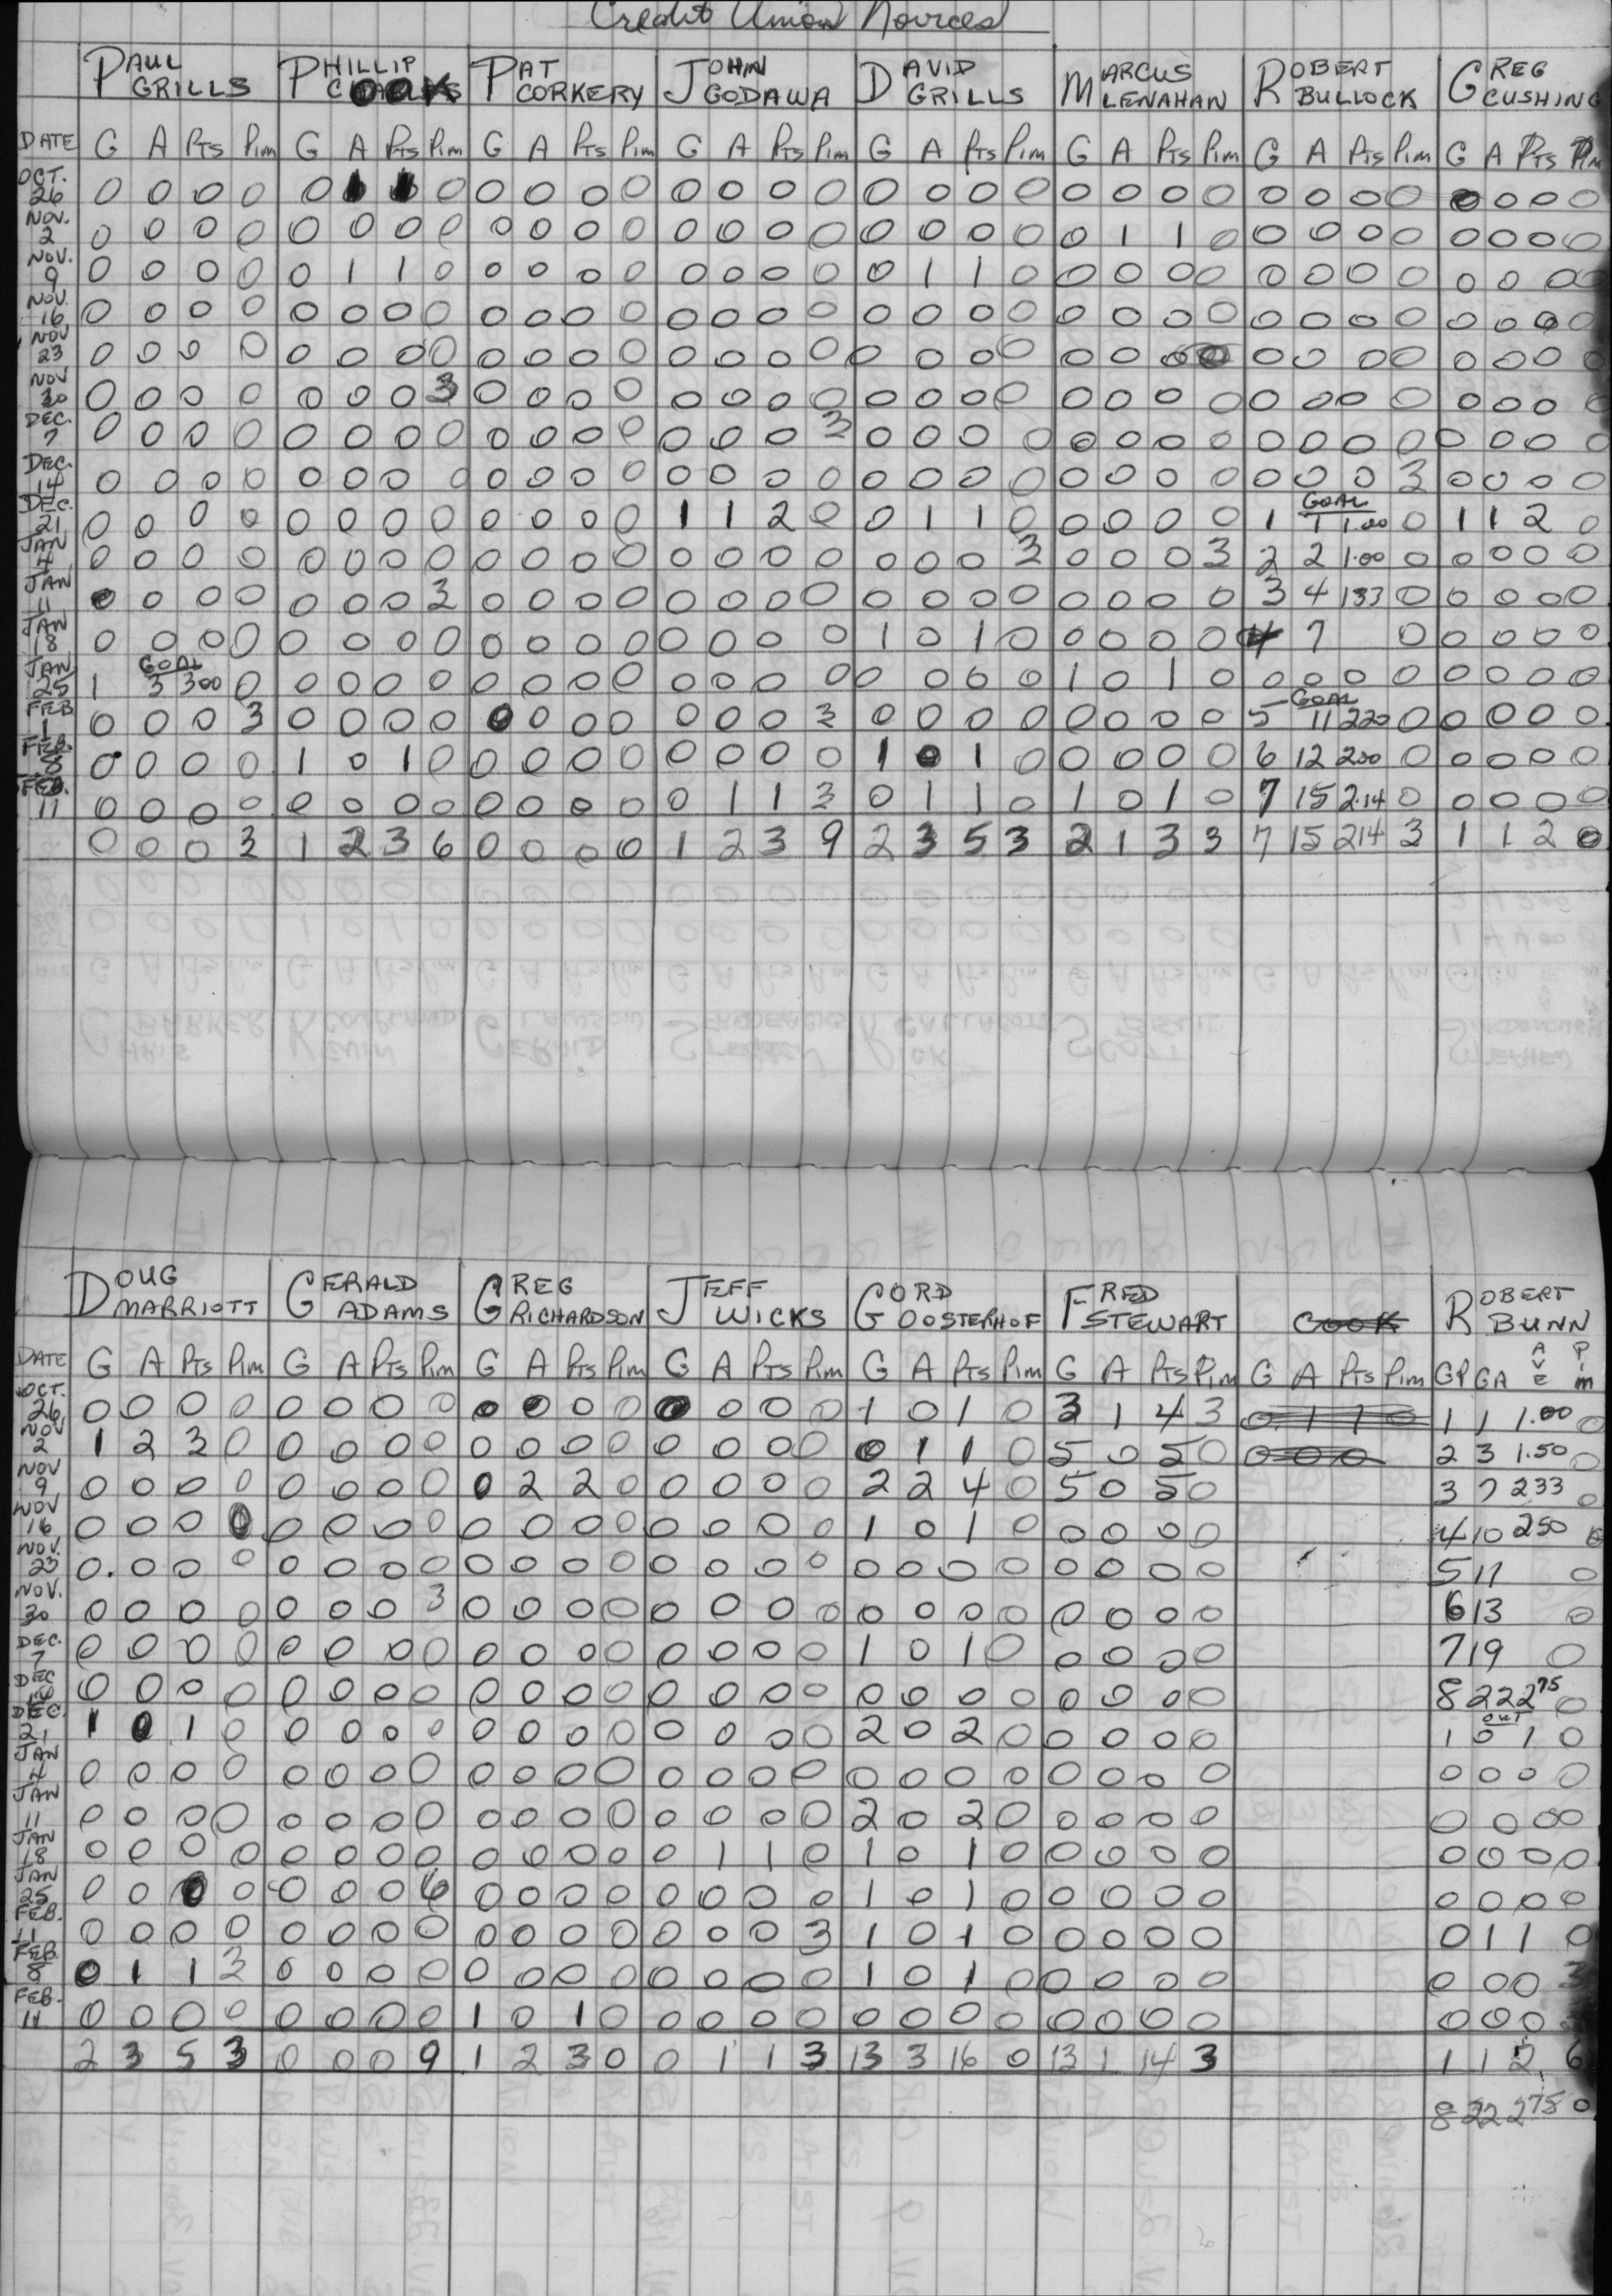 Credit Union Novices
PAUL GRILLS PHILLIP COOK PAT CORKERY JOHN GODAWA DAVID GRILLS MARCUS LENAHAN ROBERT BULLOCK GREG CUSHING
DATE G A Pts Pim G A Pts Pim G A Pts Pim G A Pts Pim G A Pts Pim G A Pts Pim G A Pts Pim G A Pts Pim
OCT. 26 0 0 0 0 0 1 1 0 0 0 0 0 0 0 0 0 0 0 0 0 0 0 0 0 0 0 0 0 0 0 0 0
NOV. 2 0 0 0 0 0 0 0 0 0 0 0 0 0 0 0 0 0 0 0 0 0 1 1 0 0 0 0 0 0 0 0 0
NOV. 9 0 0 0 0 0 1 1 0 0 0 0 0 0 0 0 0 0 1 1 0 0 0 0 0 0 0 0 0 0 0 0 0
NOV. 16 0 0 0 0 0 0 0 0 0 0 0 0 0 0 0 0 0 0 0 0 0 0 0 0 0 0 0 0 0 0 0 0
NOV 23 0 0 0 0 0 0 0 0 0 0 0 0 0 0 0 0 0 0 0 0 0 0 0 0 0 0 0 0 0 0 0 0
NOV 30 0 0 0 0 0 0 0 3 0 0 0 0 0 0 0 0 0 0 0 0 0 0 0 0 0 0 0 0 0 0 0 0
DEC. 7 0 0 0 0 0 0 0 0 0 0 0 0 0 0 0 3 0 0 0 0 0 0 0 0 0 0 0 0 0 0 0 0
DEC. 14 0 0 0 0 0 0 0 0 0 0 0 0 0 0 0 0 0 0 0 0 0 0 0 0 0 0 0 3 0 0 0 0
GOAL
DEC. 21 0 0 0 0 0 0 0 0 0 0 0 0 1 1 2 0 0 1 1 0 0 0 0 0 1 1 1.00 0 1 1 2 0
JAN 4 0 0 0 0 0 0 0 0 0 0 0 0 0 0 0 0 0 0 0 3 0 0 0 3 2 2 1.00 0 0 0 0 0
JAN 11 0 0 0 0 0 0 0 3 0 0 0 0 0 0 0 0 0 0 0 0 0 0 0 0 3 4 133 0 0 0 0 0
JAN 18 0 0 0 0 0 0 0 0 0 0 0 0 0 0 0 0 1 0 1 0 0 0 0 0 4 7 0 0 0 0 0
GOAL
JAN 25 1 3 300 0 0 0 0 0 0 0 0 0 0 0 0 0 0 0 0 0 1 0 1 0 0 0 0 0 0 0 0 0
GOAL
FEB 1 0 0 0 3 0 0 0 0 0 0 0 0 0 0 0 3 0 0 0 0 0 0 0 0 5 11 220 0 0 0 0 0
FEB. 8 0 0 0 0 1 0 1 0 0 0 0 0 0 0 0 0 1 0 1 0 0 0 0 0 6 12 200 0 0 0 0 0
FEB. 11 0 0 0 0 0 0 0 0 0 0 0 0 0 1 1 3 0 1 1 0 1 0 1 0 7 15 2.14 0 0 0 0 0
0 0 0 3 1 2 3 6 0 0 0 0 1 2 3 9 2 3 5 3 2 1 3 3 7 15 214 3 1 1 2 0
DOUG MARRIOTT GERALD ADAMS GREG RICHARDSON JEFF WICKS GORD OOSTERHOF FRED STEWART COOK ROBERT BUNN
DATE G A Pts Pim G A Pts Pim G A Pts Pim G A Pts Pim G A Pts Pim G A Pts Pim G A Pts Pim GP GA AVE Pim
OCT. 26 0 0 0 0 0 0 0 0 0 0 0 0 0 0 0 0 1 0 1 0 3 1 4 3 0 1 1 0 1 1 1.00 0
NOV 2 1 2 3 0 0 0 0 0 0 0 0 0 0 0 0 0 0 1 1 0 5 0 5 0 0 0 0 2 3 1.50 0
NOV 9 0 0 0 0 0 0 0 0 0 2 2 0 0 0 0 0 2 2 4 0 5 0 5 0 3 7 233 0
NOV 16 0 0 0 0 0 0 0 0 0 0 0 0 0 0 0 0 1 0 1 0 0 0 0 0 4 10 250 0
NOV. 23 0 0 0 0 0 0 0 0 0 0 0 0 0 0 0 0 0 0 0 0 0 0 0 0 5 11 0
NOV. 30 0 0 0 0 0 0 0 3 0 0 0 0 0 0 0 0 0 0 0 0 0 0 0 0 6 13 0
DEC. 7 0 0 0 0 0 0 0 0 0 0 0 0 0 0 0 0 1 0 1 0 0 0 0 0 7 19 0
DEC 14 0 0 0 0 0 0 0 0 0 0 0 0 0 0 0 0 0 0 0 0 0 0 0 0 8 22 275 0
OUT
DEC. 21 1 0 1 0 0 0 0 0 0 0 0 0 0 0 0 0 2 0 2 0 0 0 0 0 1 0 1 0
JAN 4 0 0 0 0 0 0 0 0 0 0 0 0 0 0 0 0 0 0 0 0 0 0 0 0 0 0 0 0
JAN 11 0 0 0 0 0 0 0 0 0 0 0 0 0 0 0 0 2 0 2 0 0 0 0 0 0 0 0 0
JAN 18 0 0 0 0 0 0 0 0 0 0 0 0 0 1 1 0 1 0 1 0 0 0 0 0 0 0 0 0
JAN 25 0 0 0 0 0 0 0 6 0 0 0 0 0 0 0 0 1 0 1 0 0 0 0 0 0 0 0 0
FEB. 1 0 0 0 0 0 0 0 0 0 0 0 0 0 0 0 3 1 0 1 0 0 0 0 0 0 1 1 0
FEB. 8 0 1 1 3 0 0 0 0 0 0 0 0 0 0 0 0 1 0 1 0 0 0 0 0 0 0 0 3
FEB. 11 0 0 0 0 0 0 0 0 1 0 1 0 0 0 0 0 0 0 0 0 0 0 0 0 0 0 0
2 3 5 3 0 0 0 9 1 2 3 0 0 1 1 3 13 3 16 0 13 1 14 3 1 1 2 6
8 22 275 0